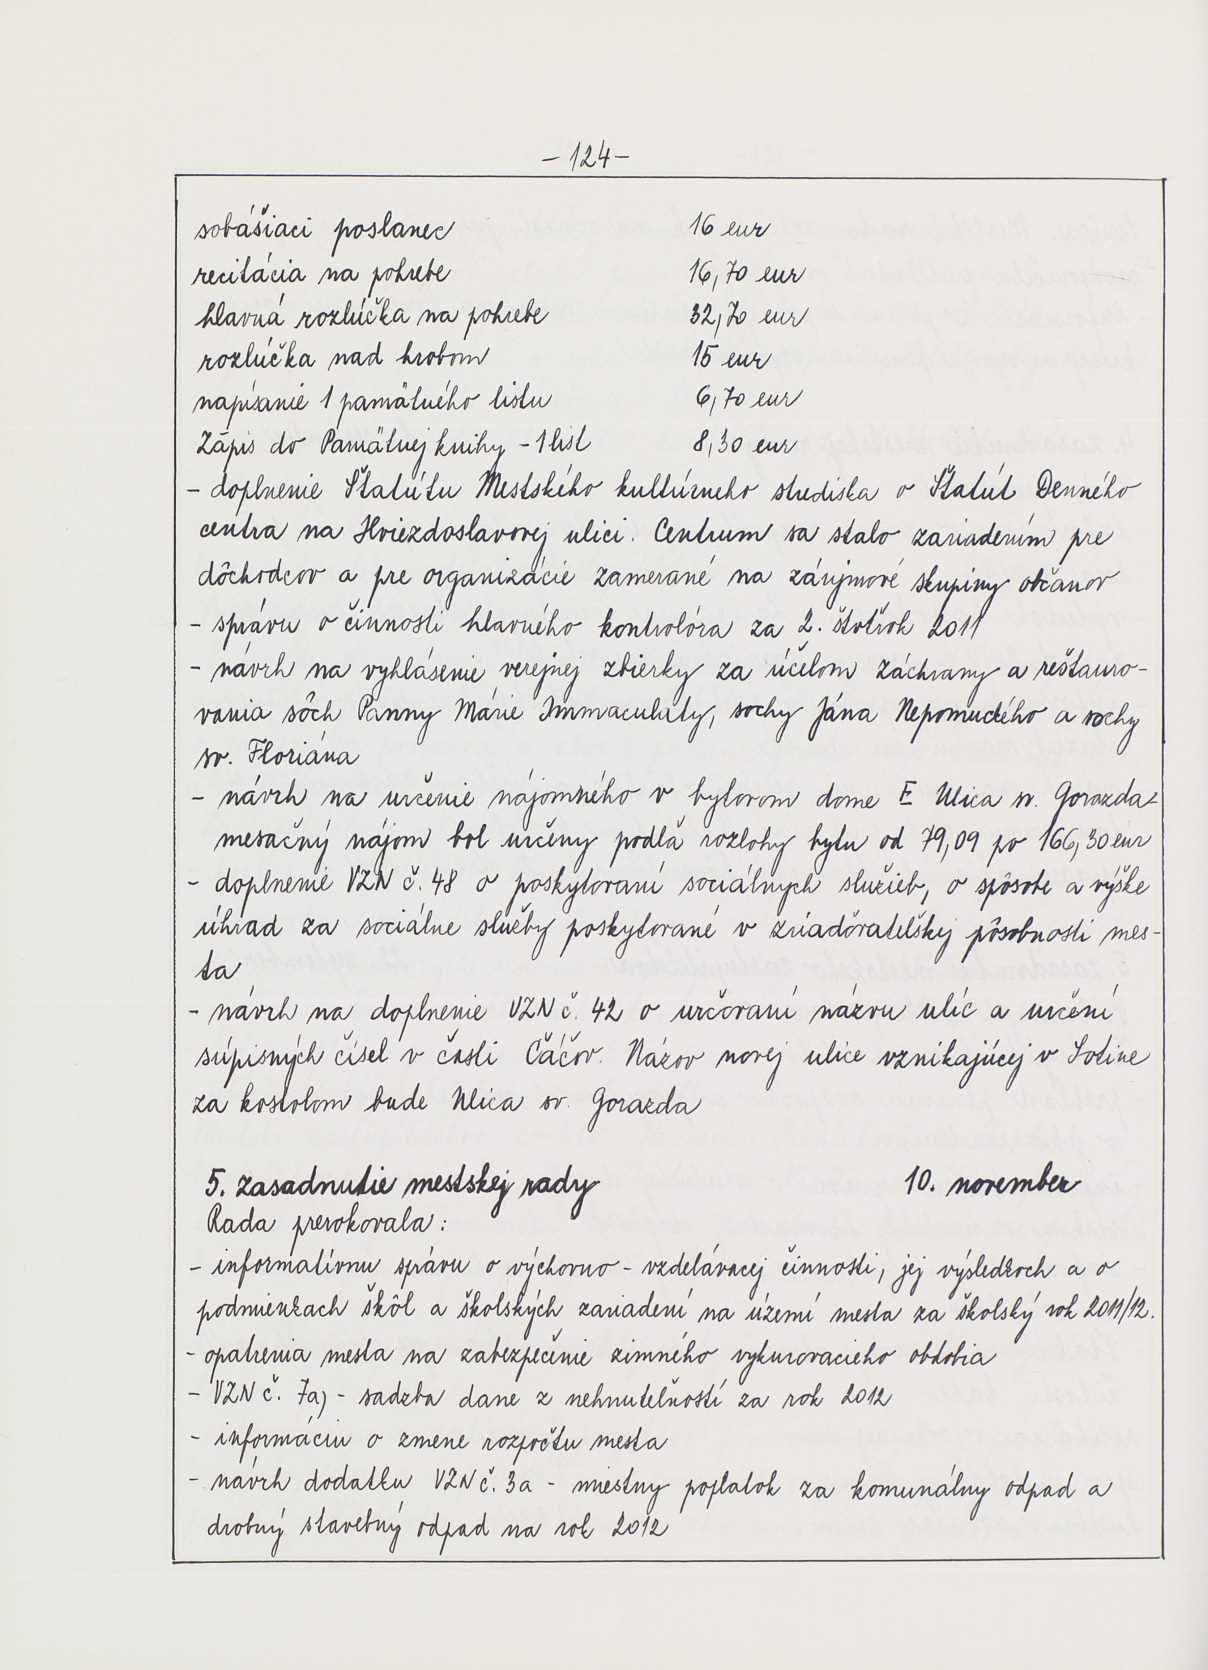 - 124 -
sobášiaci poslanec 16 eur
recitácia na pohrebe 16,70 eur
hlavná rozlúčka na pohrebe 32,70 eur
rozlúčka nad hrobom 15 eur
napísanie 1 pamätného listu 6,70 eur
Zápis do Pamätnej knihy - 1 list 8,30 eur
- doplnenie Štatútu Mestského kultúrneho strediska o Štatút Denného
centra na Hviezdoslavovej ulici. Centrum sa stalo zariadením pre
dôchodcov a pre organizácie zamerané na záujmové skupiny občanov
- správu o činnosti hlavného kontrolóra za 2. štvťrok 2011
- návrh na vyhlásenie verejnej zbierky za účelom záchrany a reštauro-
vania sôch Panny Márie Immaculaty, sochy Jána Nepomuckého a sochy
sv. Floriána
- návrh na určenie nájomného v bytovom dome E Ulica sv. Gorazda-
mesačný nájom bol určený podľa rozlohy bytu od 79,09 po 166,30 eur
- doplnenie VZN č. 48 o poskytovaní sociálnych služieb, o spôsobe a výške
úhrad za sociálne služby poskytované v zriaďovateľskej pôsobnosti mes-
ta
- návrh na doplnenie VZN č. 42 o určovaní názvu ulíc a určení
súpisných čísel v časti Čáčov. Názov novej ulice vznikajúcej v Sotine
za kostolom bude Ulica sv. Gorazda
5. zasadnutie mestskej rady 10. november
Rada prerokovala:
- informatívnu správu o výchovno - vzdelávacej činnosti, jej výsledkoch a o
podmienkach škôl a školských zariadení na území mesta za školský rok 2011/12.
- opatrenia mesta na zabezpečenie zimného vykurovacieho obdobia
- VZN č. 7a) - sadzba dane z nehnuteľností za rok 2012
- informáciu o zmene rozpočtu mesta
- návrh dodatku VZN č. 3a - miestny poplatok za komunálny odpad a
drobný stavebný odpad na rok 2012